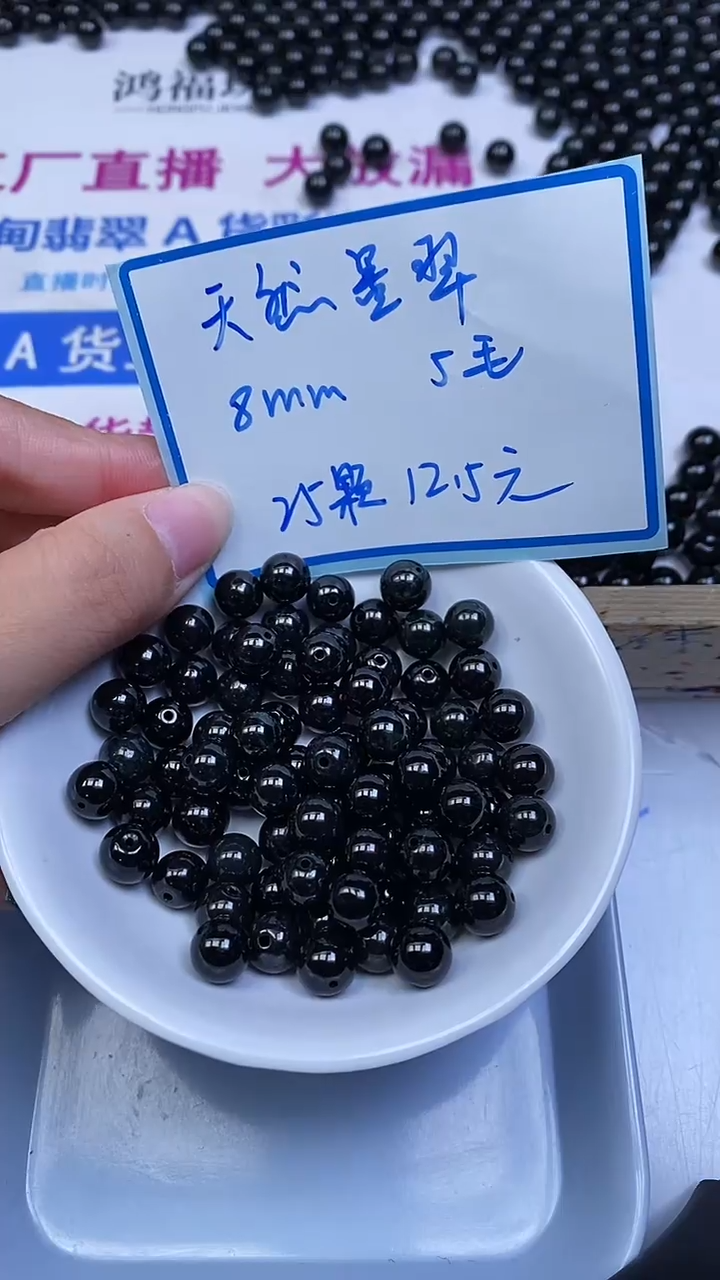 鸿福
工厂直播 大放漏
甸翡翠A货
直播时
A货
天然星翠
8mm 5毛
25颗 12.5元